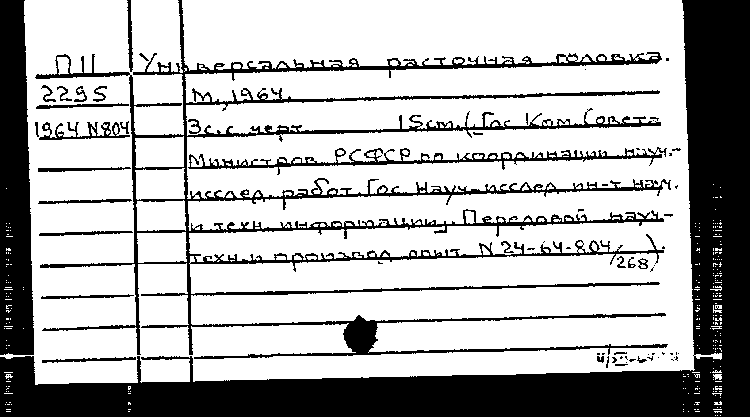 П11 Универсальная расточная головка.
2295 М., 1964.
1964 N804 3с. с черт. 15см. (Гос Ком. Совета
Министров РСФСР по координации науч.-
исслед. работ. Гос. Науч-исслед. ин-т науч.
и техн. информации). Передовой науч-
техн. и производ. опыт. N 24-64-804/268).